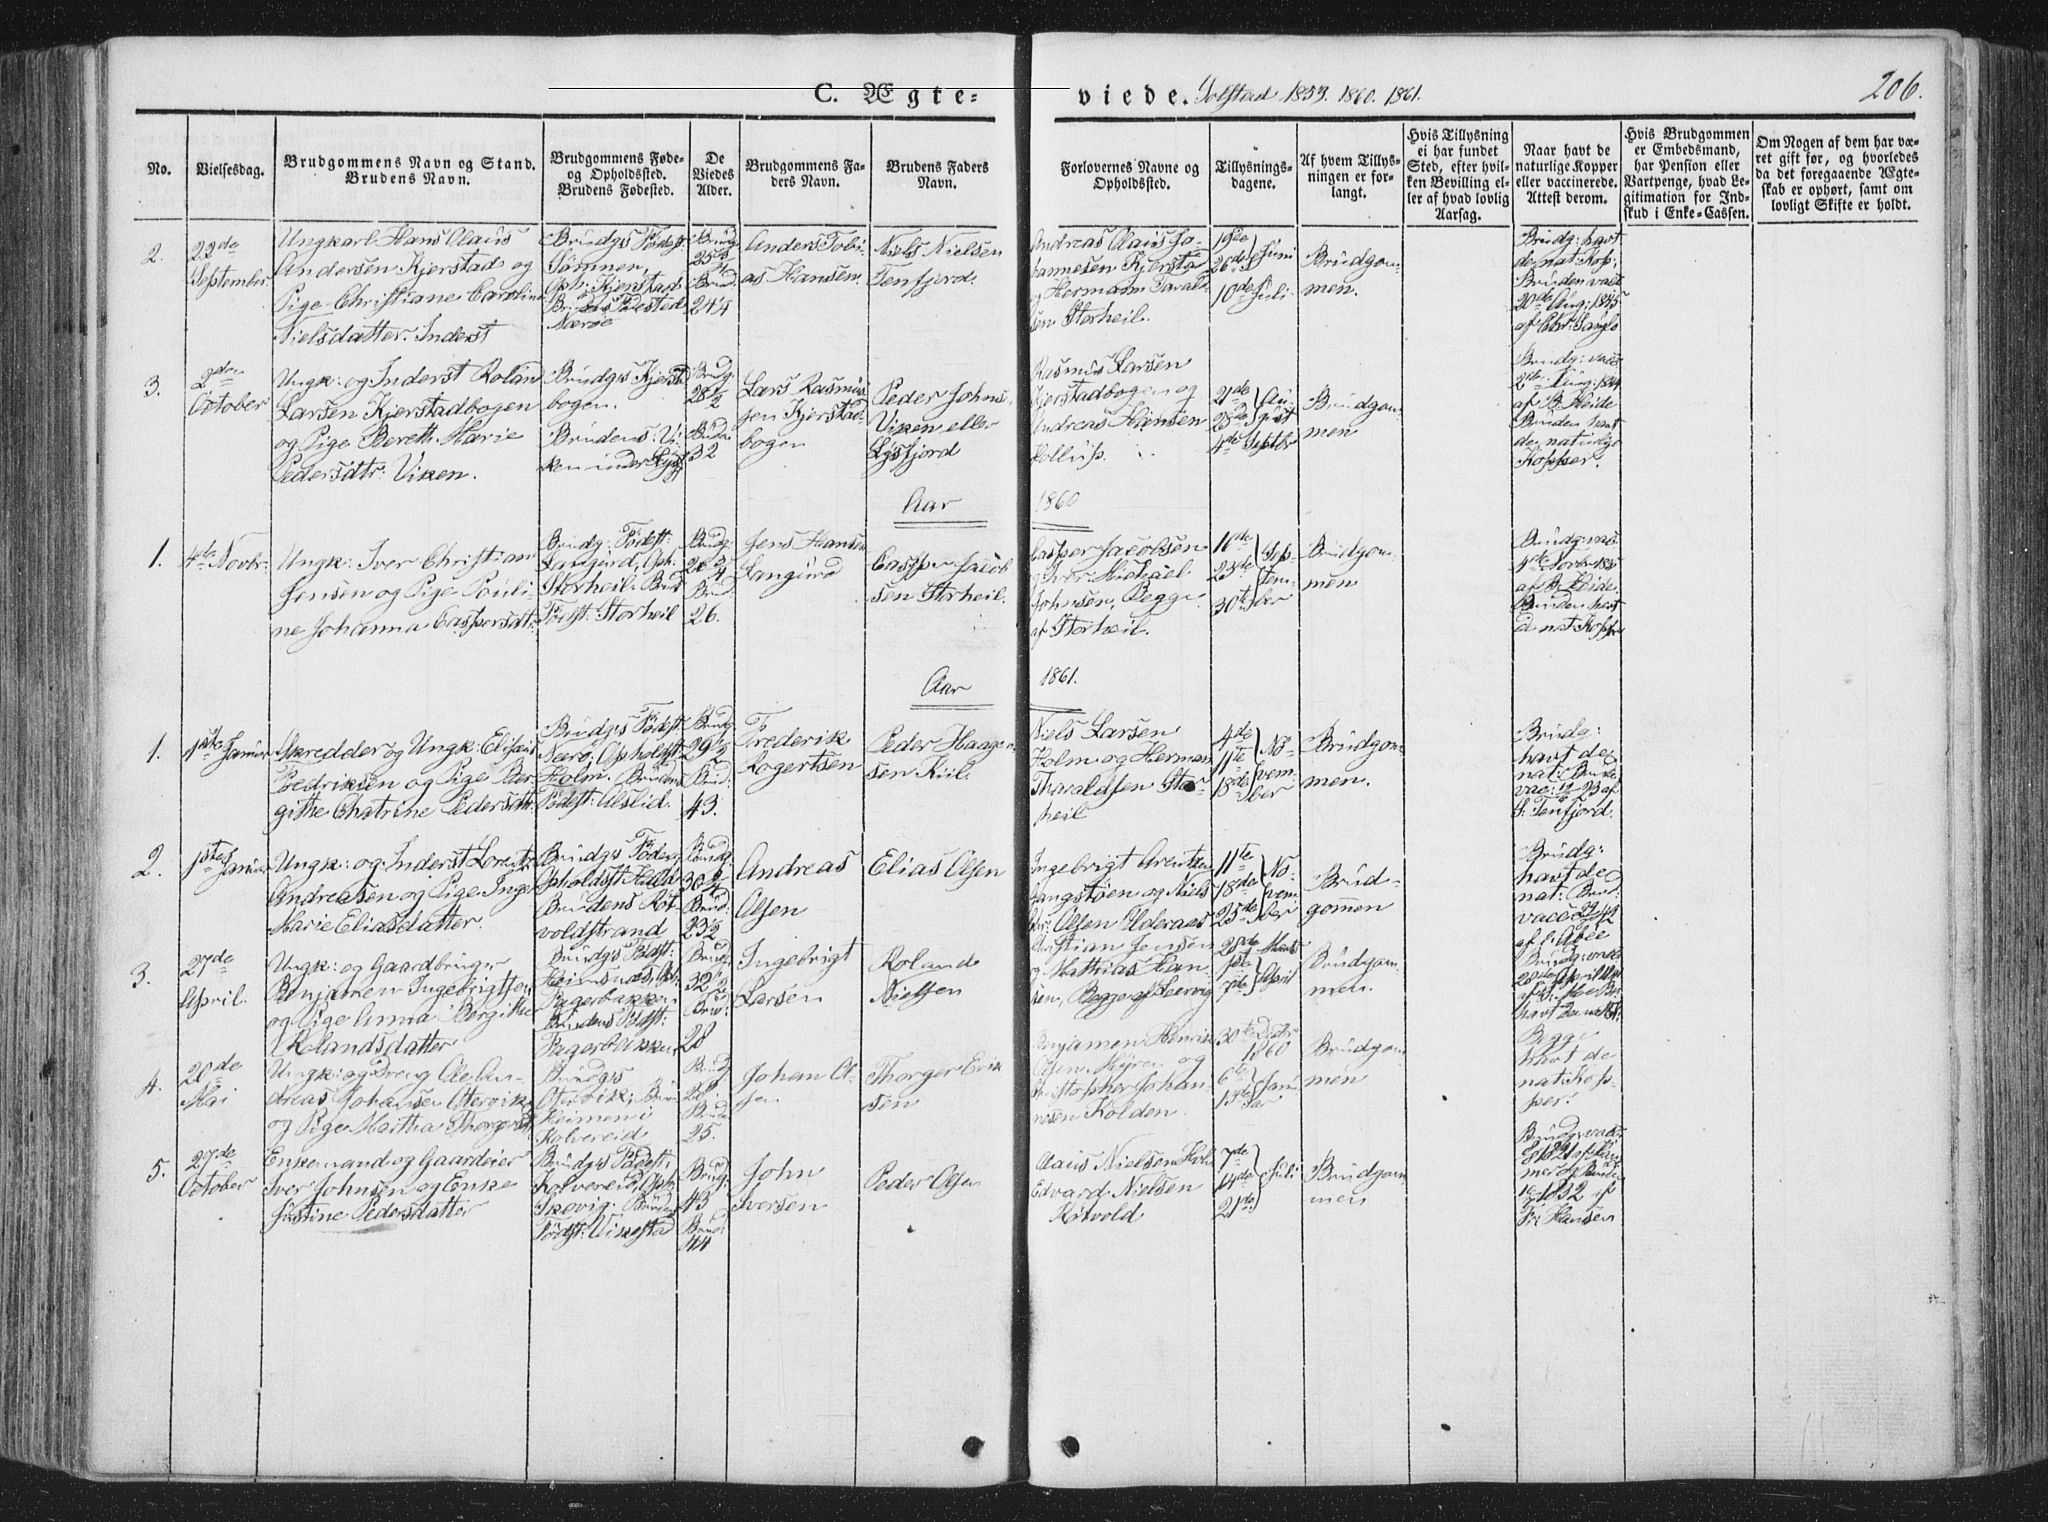 C. Ægte-
viede. Solstad 1859. 1860. 1861.
206.
No.
Vielsesdag.
Brudgommens Navn og Stand.
Brudens Navn.
Brudgommens Føde-
og Opholdssted.
Brudens Fødested.
De
Viedes
Alder.
Brudgommens Fa-
ders Navn.
Brudens Faders
Navn.
Forlovernes Navne og
Opholdssted.
Tillysnings-
dagene.
Af hvem Tillys-
ningen er for-
langt.
Hvis Tillysning
ei har fundet
Sted, efter hvil-
ken Bevilling el-
ler af hvad lovlig
Aarsag.
Naar havt de
naturlige Kopper
eller vaccinerede.
Attest derom.
Hvis Brudgommen
er Embedsmand,
har Pension eller
Vartpenge, hvad Le-
gitimation for Ind-
skud i Enke-Cassen.
Om Nogen af dem har væ-
ret gift før, og hvorledes
da det foregaaende Ægte-
skab er ophørt, samt om
lovligt Skifte er holdt.
2.
22de
September
Ungkarl Hans Olaus
Andersen Kjerstad og
Pige Christiane Caroline
Nielsdatter. Inderst
Brudgs Fødest:
Sømnen,
Oph: Kjerstad
Brudens Fødested
Nærøe
Brudg
25 3/4
Brud.
24 1/4
Anders Tobi-
as Hansen.
Niels Nielsen
Tenfjord.
Andreas Olaus Jo-
hannesen Kjerstad
og Hermann Tarald-
sen Storheil.
19de
26de Juni
10de Juli
Brudgom-
men.
Brudg: havt
de nat: Kop:
Bruden vacc
20de Aug: 1845
3.
2den
October
Ungk: og Inderst Rolan
Larsen Kjerstadbogen
og Pige Bereth Marie
Pedersdtr: Viken.
Brudgs Kjerst
bogen.
Brudens: Vi-
ken under
Brudg.
28 1/2
Brudn
32
Lars Rasmus-
sen Kjerstad-
bogen
Peder Johns.
Viken eller
Lysfjord
Rasmus Larsen
Kjerstadbogen og
Andreas Hansen
21de Au-
28de gust
4de Septbr
Brudgom-
men
Brudg: vacc
2de Aug: 1844
af B. Heide
Bruden havt
de naturlige
Kopper.
Aar
1860
1.
4de Novbr.
Ungk: Iver Christian
Jensen og Pige Pauli-
ne Johanna Caspersdtr:
Brudg: Fødest:
Langørd, Oph:
Storheil. Brud
Fødst: Storheil
Brudg.
26 3/4
Brud.
26.
Jens Hansen
Langørd
Casper Jacob-
sen Storheil.
Casper Jacobsen
og Iver Michael
Johnsen, Begge
af Storheil.
16de Sep-
23de tem-
30te ber
Brudgom-
men
Brudg: vac:
4de Novbr 185
af B. Heide.
Bruden havt
d. nat: Kopper
Aar
1861.
1.
1ste Januar
Skredder og Ungk: Elisæus
Fredriksen og Pige Ber
githe Chatrine Pedersdtr:
Brudgs Fødest
Nærø, Opholdst:
Holm. Brudens
Fødst: Alslid.
Brudg
29 1/2
Brud:
43.
Frederik
Rogertsen
Peder Haagen-
sen Kiil.
Niels Larsen
Holm og Herman
Tharaldsen Stor-
heil
4de No-
11te vem-
18de ber
Brudgom
men.
Brudg:
havt de
nat: Brudn
vac: 12/6 23 af
S: Tenfjord.
2.
1ste Januar
Ungk: og Inderst Lorentz
Andreasen og Pige Inger
Marie Eliasdatter.
Brudgs Føde og
Opholdst: Hald
Brudens Kit-
voldstrand
Brudg:
30 3/4
Brud:
23 1/2
Andreas
Olsen
Elias Olsen
Ingebrigt Arentsen
Langstøen og Niels
Chr: Olsen Ilderaas
11te No-
18de vem-
25de ber
Brud-
gommen
Brudg:
havt de
nat: Brud
3.
27de
April.
Ungk: og Gaardbruger
Benjamin Ingebrigtsen
og Pige Anna Bergithe
Rolandsdatter
Brudgs Fødst:
Heimsnes, Oph:
Fagerbakken
Brudens Fødst:
Fagerbakken
Brudg.
32 1/2
Brud:
28
Ingebrigt
Larsen
Roland
Nielsen
Christian Jensen
og Mathias Han-
sen, Begge af Leervig
28de Marts
1ste April
7de
Brudgom-
men.
4.
20de
Mai
Ungk: og Dreng Ole An-
dreas Johansen Otervik
og Pige Martha Thorgersdtr
Brudgs
Otervik, Brud
Heimen i
Kolvereid
Brudg
28.
Brud:
25.
Johan Ol-
sen
Thorger Erik
sen
Benjamin Henrik
Olsen Myre, og
Christopher Johan-
nesen Kolden
30te Decbr
1860
6te Janu-
13de ar
Brudgom
men
Begge
havt de
nat: Kop-
per.
5.
27de
October
Enkemand og Gaardeier
Iver Johnsen og Enke
Justine Pedersdatter
Brudgs Fødest:
Kolvereid, Oph:
Skovig. Brudens
Fødst: Vikestad
Brudg.
43
Brud:
44
John
Iversen
Peder Olsen
Claus Nielsen Holm
Edvard Nielsen
Kitvold
7de
14de Juli
21de
Brudgom
men
Brudg: vacc
1832 af
Fr: Hansen